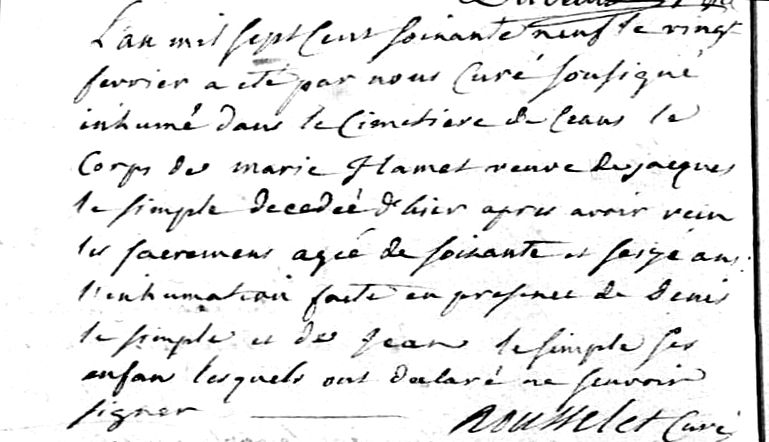 L'an mil sept Cent soixante neuf le vingt
fevrier a eté par nous Curé soussigné
inhumé dans le Cimetiere de Ceans le
Corps de marie hamet veuve de jacques
le simple decedeé d'hier apres avoir recu
les sacremens ageé de soixante et seize ans
l'inhumation faite en presence de Denis
le simple et de Jean le simple ses
enfan lesquels ont declaré ne scavoir
signer Rousselet Curé